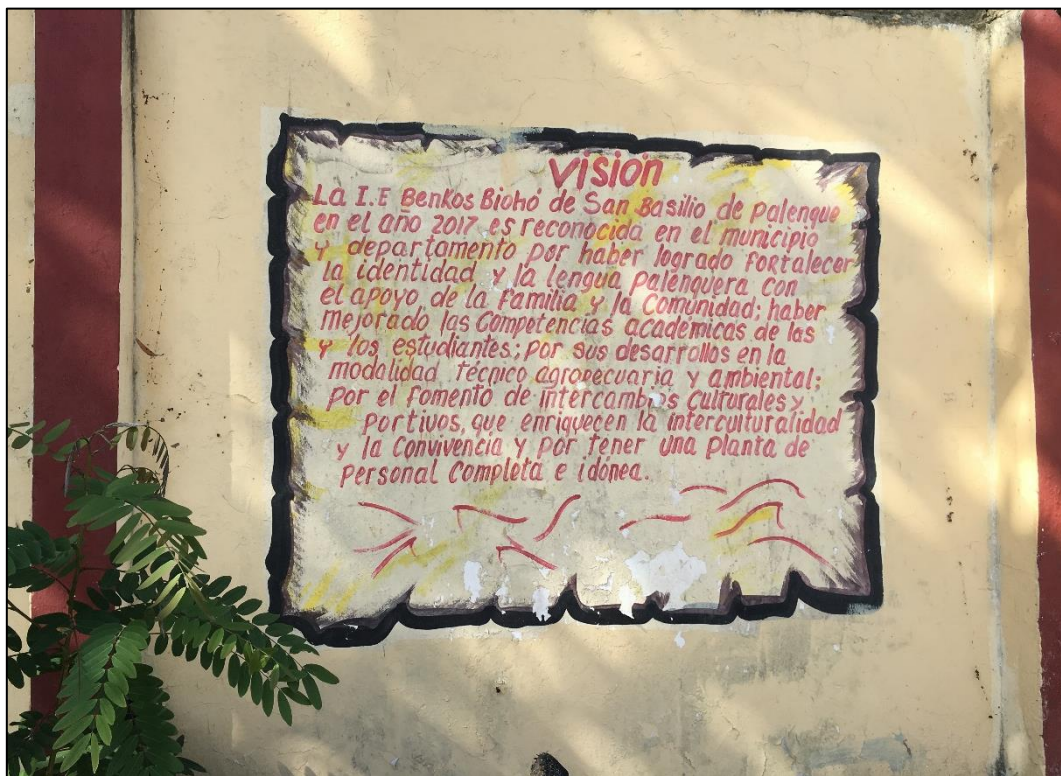 Visión
La I.E Benkos Biohó de San Basilio de Palenque
en el año 2017 es reconocida en el municipio
y departamento por haber logrado fortalecer
la identidad y la lengua palenquera con
el apoyo de la familia y la Comunidad; haber
mejorado las Competencias académicas de las
y los estudiantes; por sus desarrollos en la
modalidad técnico agropecuaria y ambiental;
por el fomento de intercambios Culturales y
portivos, que enriquecen la interculturalidad
y la Convivencia y por tener una planta de
personal Completa e idónea.